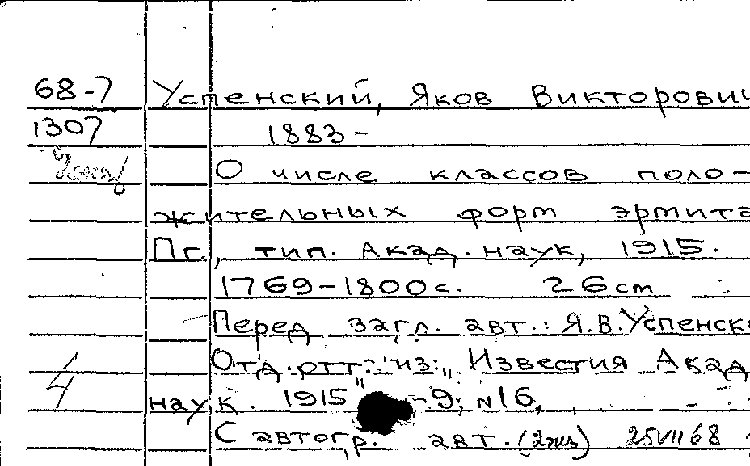 68-7 Успенский, Яков Викторович
1307 1883-
О числе классов поло-
жительных форм эрмита
Пг., тип. Акад. наук, 1915.
1769-1800 с. 26 cm
Перед загл. авт.: Я.В.Успенск
Отд. отт. из: „Известия Акад
4
наук. 1915" -9; №16,
С автогр. авт. (2экз) 25 VII 68